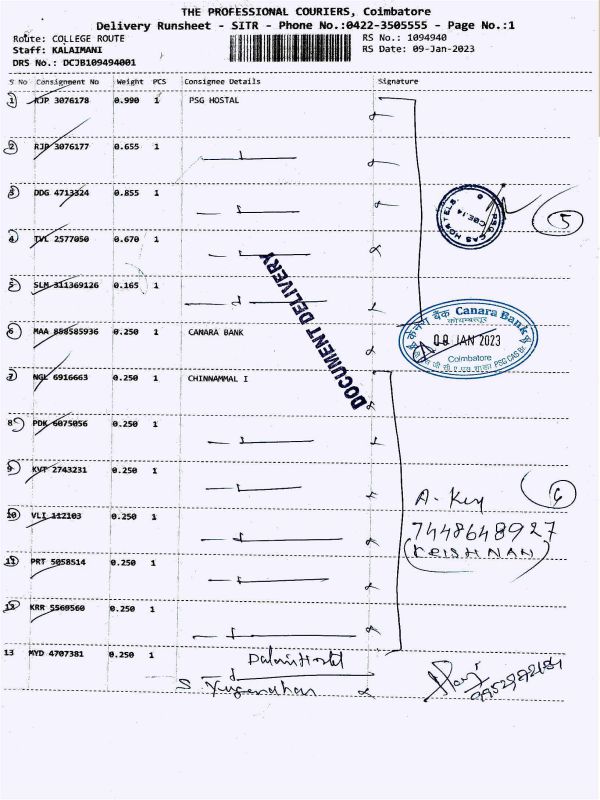 THE PROFESSIONAL COURIERS, Coimbatore
Delivery Runsheet - SITR - Phone No.:0422-3505555 - Page No.:1
Route: COLLEGE ROUTE RS No.: 1094940
Staff: KALAIMANI RS Date: 09-Jan-2023
DRS No.: DCJB109494001
S No Consignment No Weight PCS Consignee Details Signature
1 RJP 3076178 0.990 1 PSG HOSTAL
2 RJP 3076177 0.655 1
3 DDG 4713324 0.855 1
PSG CAS HOSTELS
CBE.14
5
4 TVL 2577050 0.670 1
DOCUMENT DELIVERY
5 SLM 311369126 0.165 1
6 MAA 858585936 0.250 1 CANARA BANK
केनरा बैंक Canara Bank
कोयम्बत्तूर
09 JAN 2023
Coimbatore
PSG CAS Br.
7 NGL 6916663 0.250 1 CHINNAMMAL I
8 PDK 6075056 0.250 1
9 KVT 2743231 0.250 1
6
10 VLI 112103 0.250 1
7448648927
(KRISHNAN)
11 PRT 5058514 0.250 1
12 KRR 5569560 0.250 1
13 MYD 4707381 0.250 1